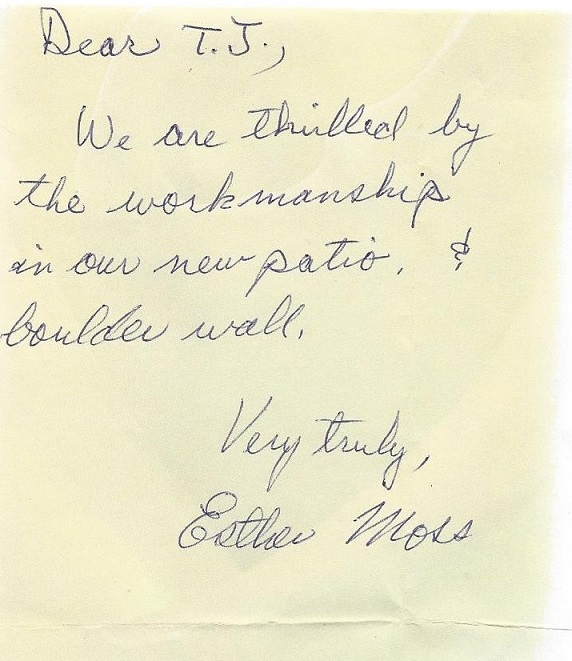 Dear T.J.,
We are thrilled by
the workmanship
in our new patio, &
boulder wall.
Very truly,
Esther Moss